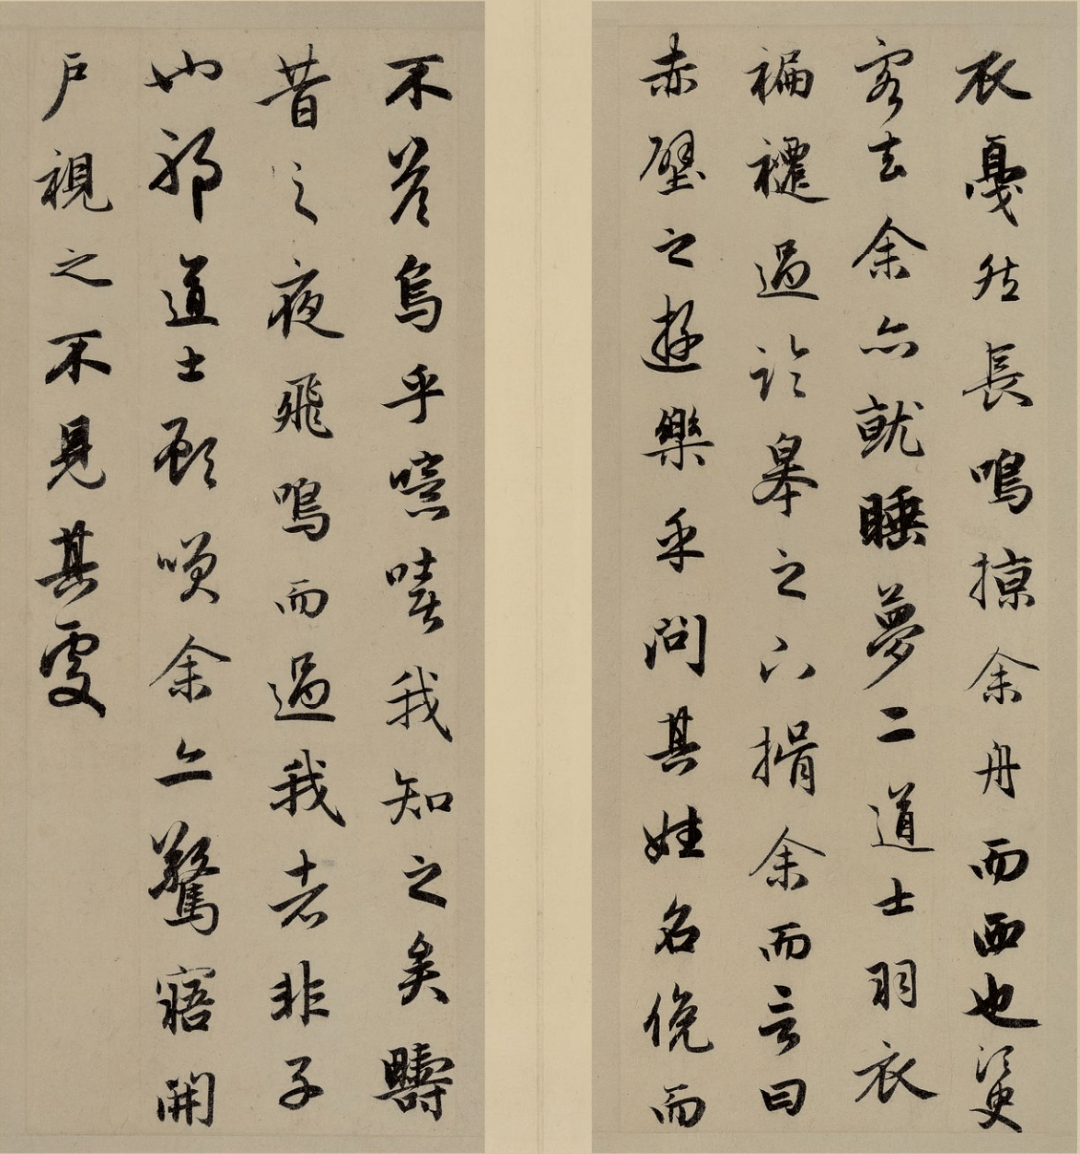 衣戞然長鳴掠余舟而西也須臾
客去余亦就睡夢二道士羽衣
褊褼過臨皋之下揖余而言曰
赤壁之遊樂乎問其姓名俛而
不答烏乎噫嘻我知之矣疇
昔之夜飛鳴而過我者非子
也邪道士顧咲余亦驚寤開
户視之不見其處